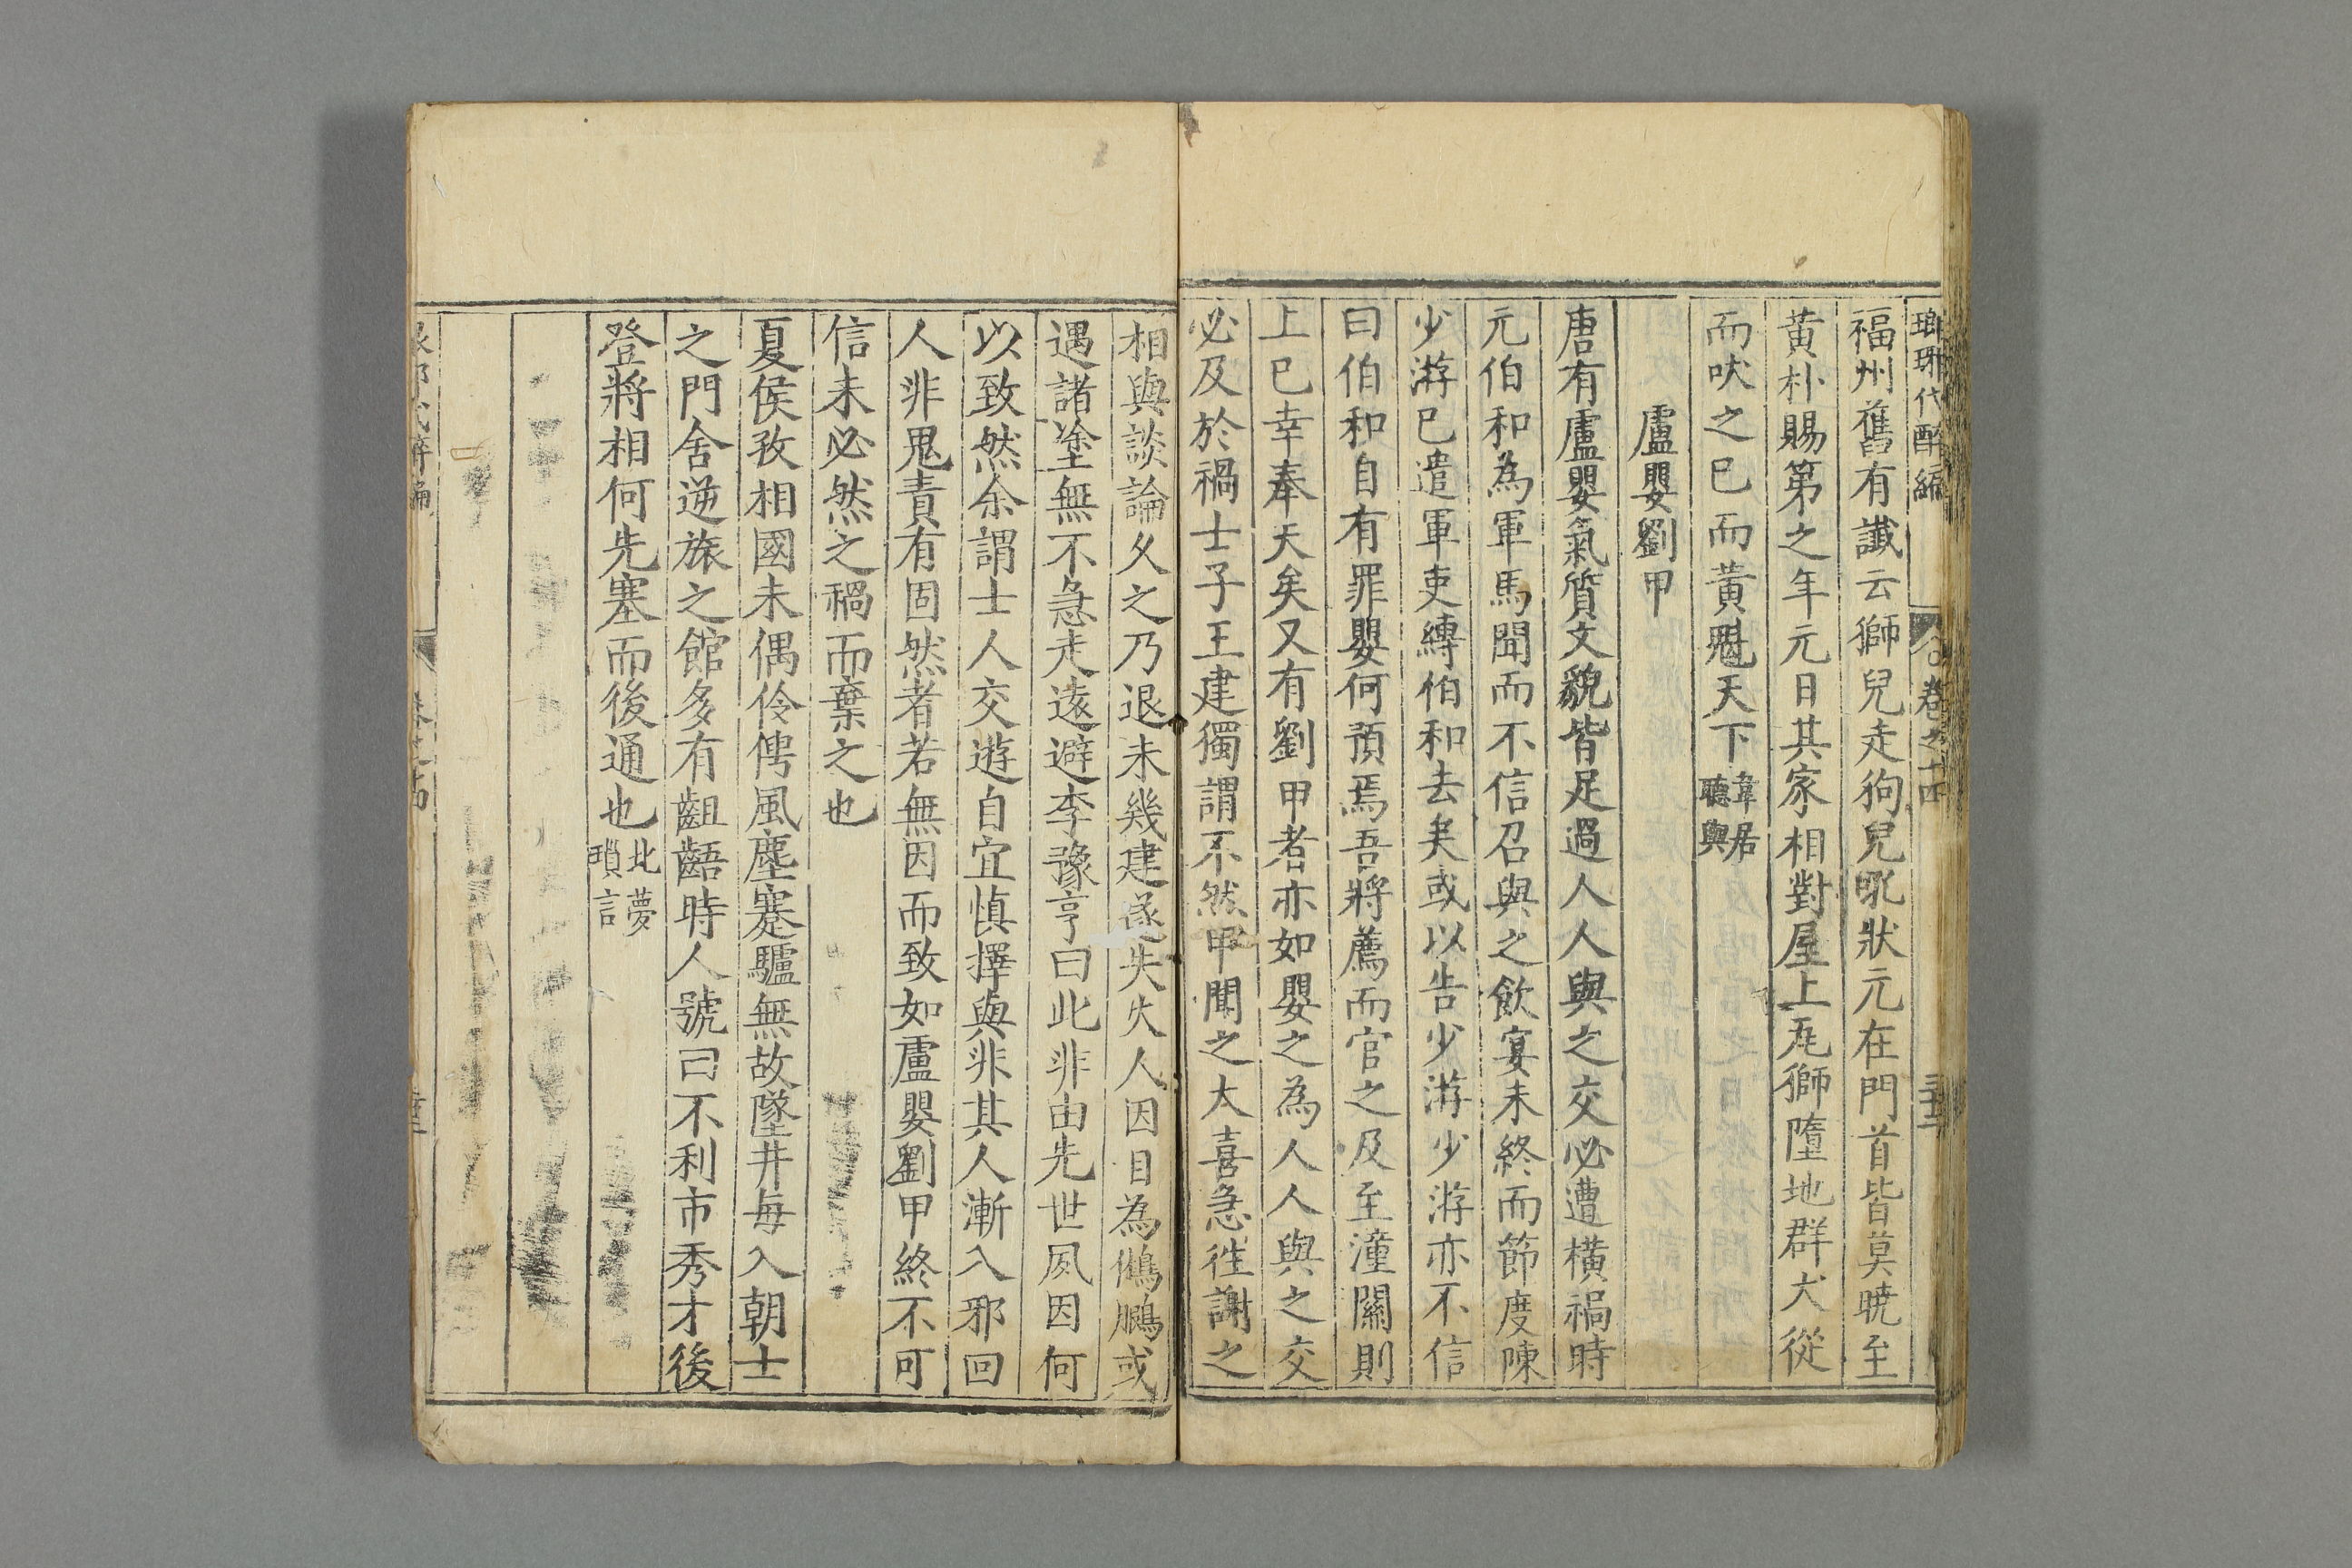 瑯琊代醉編 卷之十四
福州舊有讖云獅兒走狗兒吠狀元在門首皆莫曉至
黃朴賜第之年元日其家相對屋上瓦獅墮地群犬從
而吠之已而黃魁天下韋居聽輿
盧嬰劉甲
唐有盧嬰氣質文貌皆足過人人與之交必遭橫禍時
元伯和為軍馬聞而不信召與之飲宴未終而節度陳
少游已遣軍吏縛伯和去矣或以告少游少游亦不信
曰伯和自有罪嬰何預焉吾將薦而官之及至潼關則
上已幸奉天矣又有劉甲者亦如嬰之為人人與之交
必及於禍士子王建獨謂不然甲聞之大喜急徃謝之
相與談論久之乃退未幾建遂失火人因目為鵂鵬或
遇諸塗無不急走遠避李豫亨曰此非由先世夙因何
以致然余謂士人交遊自宜慎擇與非其人漸入邪回
人非鬼責有固然者若無因而致如盧嬰劉甲終不可
信未必然之禍而棄之也
夏侯孜相國未偶伶俜風塵蹇驢無故墜井每入朝士
之門舍逆旅之館多有齟齬時人號曰不利市秀才後
登將相何先塞而後通也北夢瑣言